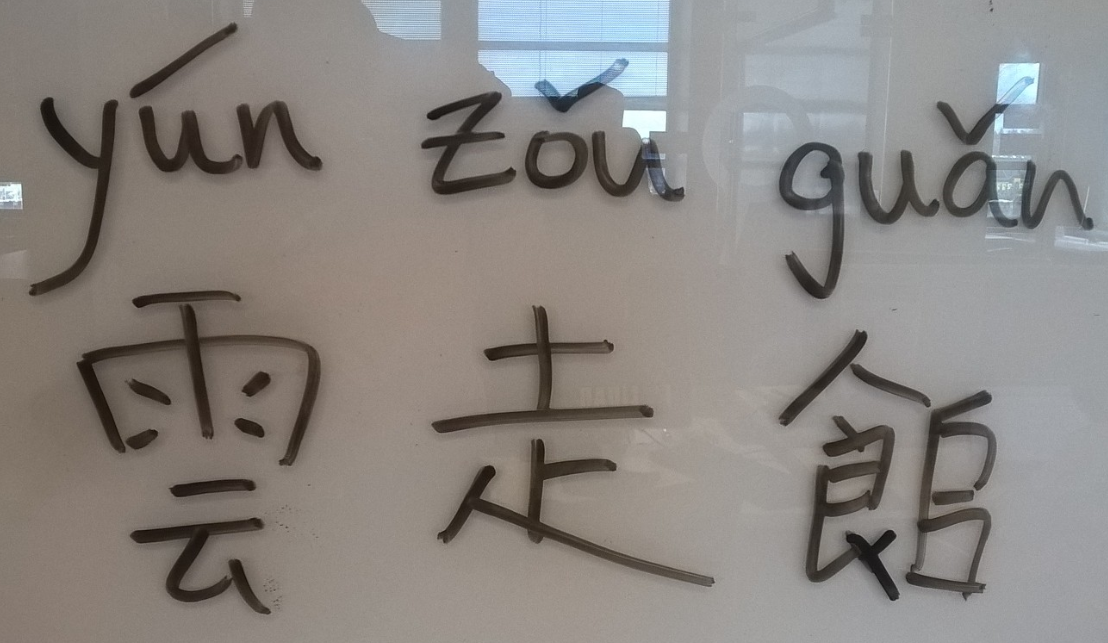 yún zǒu guǎn
雲走館